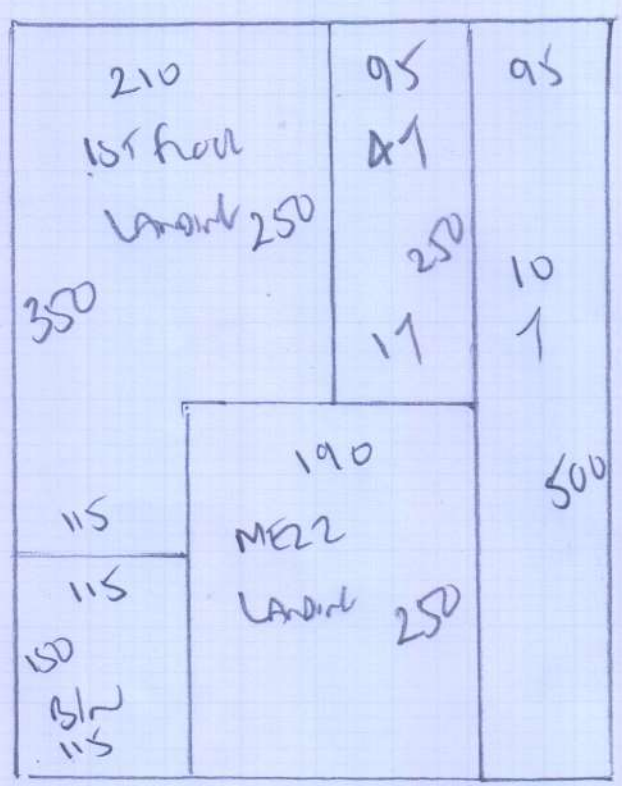 210
1ST FLOOR
LANDING 250
350
115
95
250
95
10
1
500
190
MEZZ
LANDING 250
115
150
115